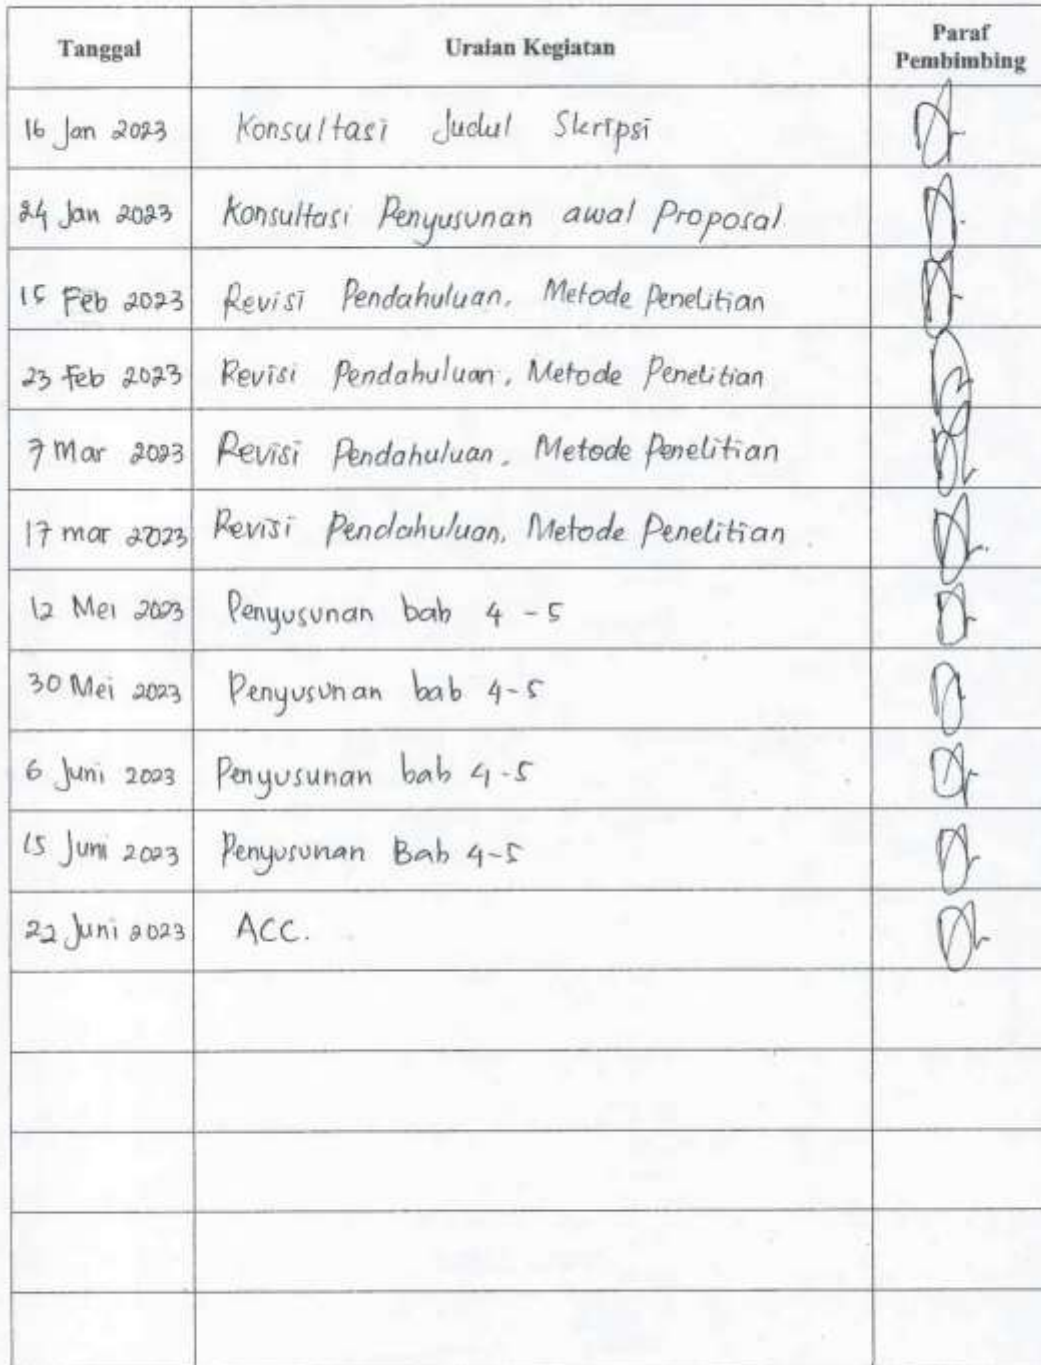 Tanggal Uraian Kegiatan Paraf
Pembimbing
16 Jan 2023 Konsultasi Judul Skripsi
24 Jan 2023 Konsultasi Penyusunan awal Proposal
15 Feb 2023 Revisi Pendahuluan, Metode Penelitian
23 Feb 2023 Revisi Pendahuluan, Metode Penelitian
7 Mar 2023 Revisi Pendahuluan, Metode Penelitian
17 mar 2023 Revisi Pendahuluan, Metode Penelitian
12 Mei 2023 Penyusunan bab 4 - 5
30 Mei 2023 Penyusunan bab 4-5
6 Juni 2023 Penyusunan bab 4-5
15 Juni 2023 Penyusunan Bab 4-5
22 Juni 2023 ACC.